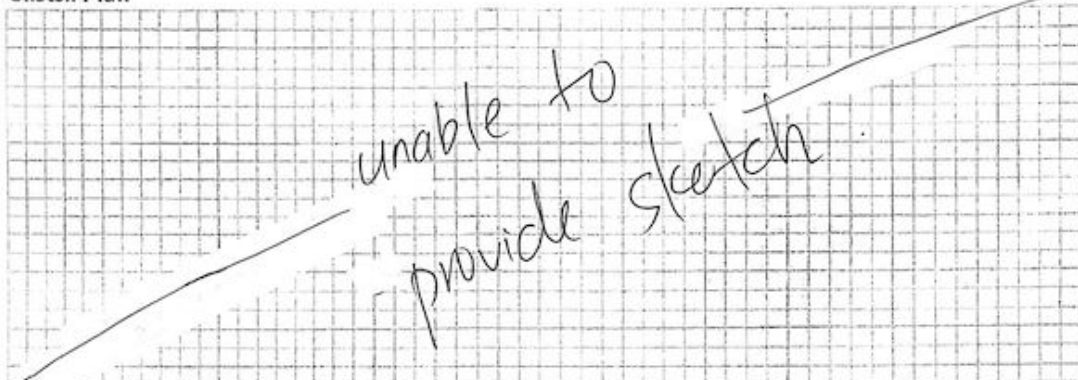 unable to
provide sketch